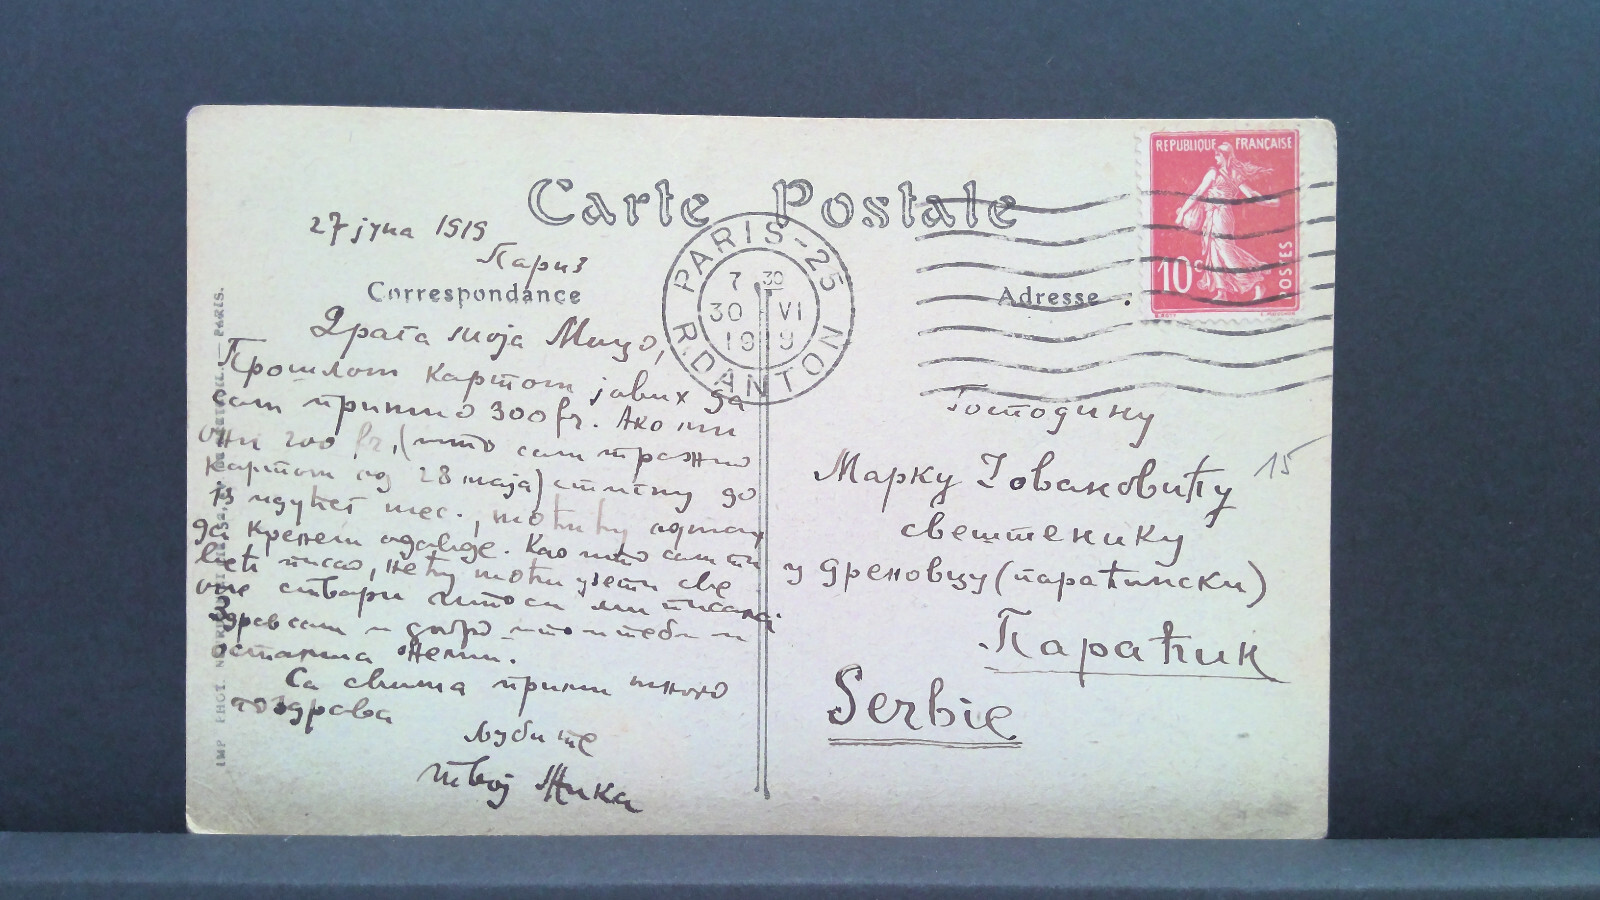 Carte Postale
REPUBLIQUE FRANÇAISE
10c
POSTES
PARIS-25
7 30
30 VI
1919
R. DANTON
27 јуна 1919
Париз
Correspondance
Adresse
Драга моја Мицо,
Прошлом картом јавих да
сам примио 300 fr. Ако ми
они 200 fr. (што сам тражио
картом од 28 маја) стигну до
15 идућег мес., моћи ћу одмах
да кренем одавде. Као што сам ти
већ писао, нећу моћи узети све
оне ствари што си ми писала.
Здрав сам и добро што и теби и
осталима желим.
Са свима прими много
поздрава
Љуби те
твој Жика
Господину
Марку Јовановићу
15
свештенику
у Дреновцу (параћински)
Параћин
Serbie